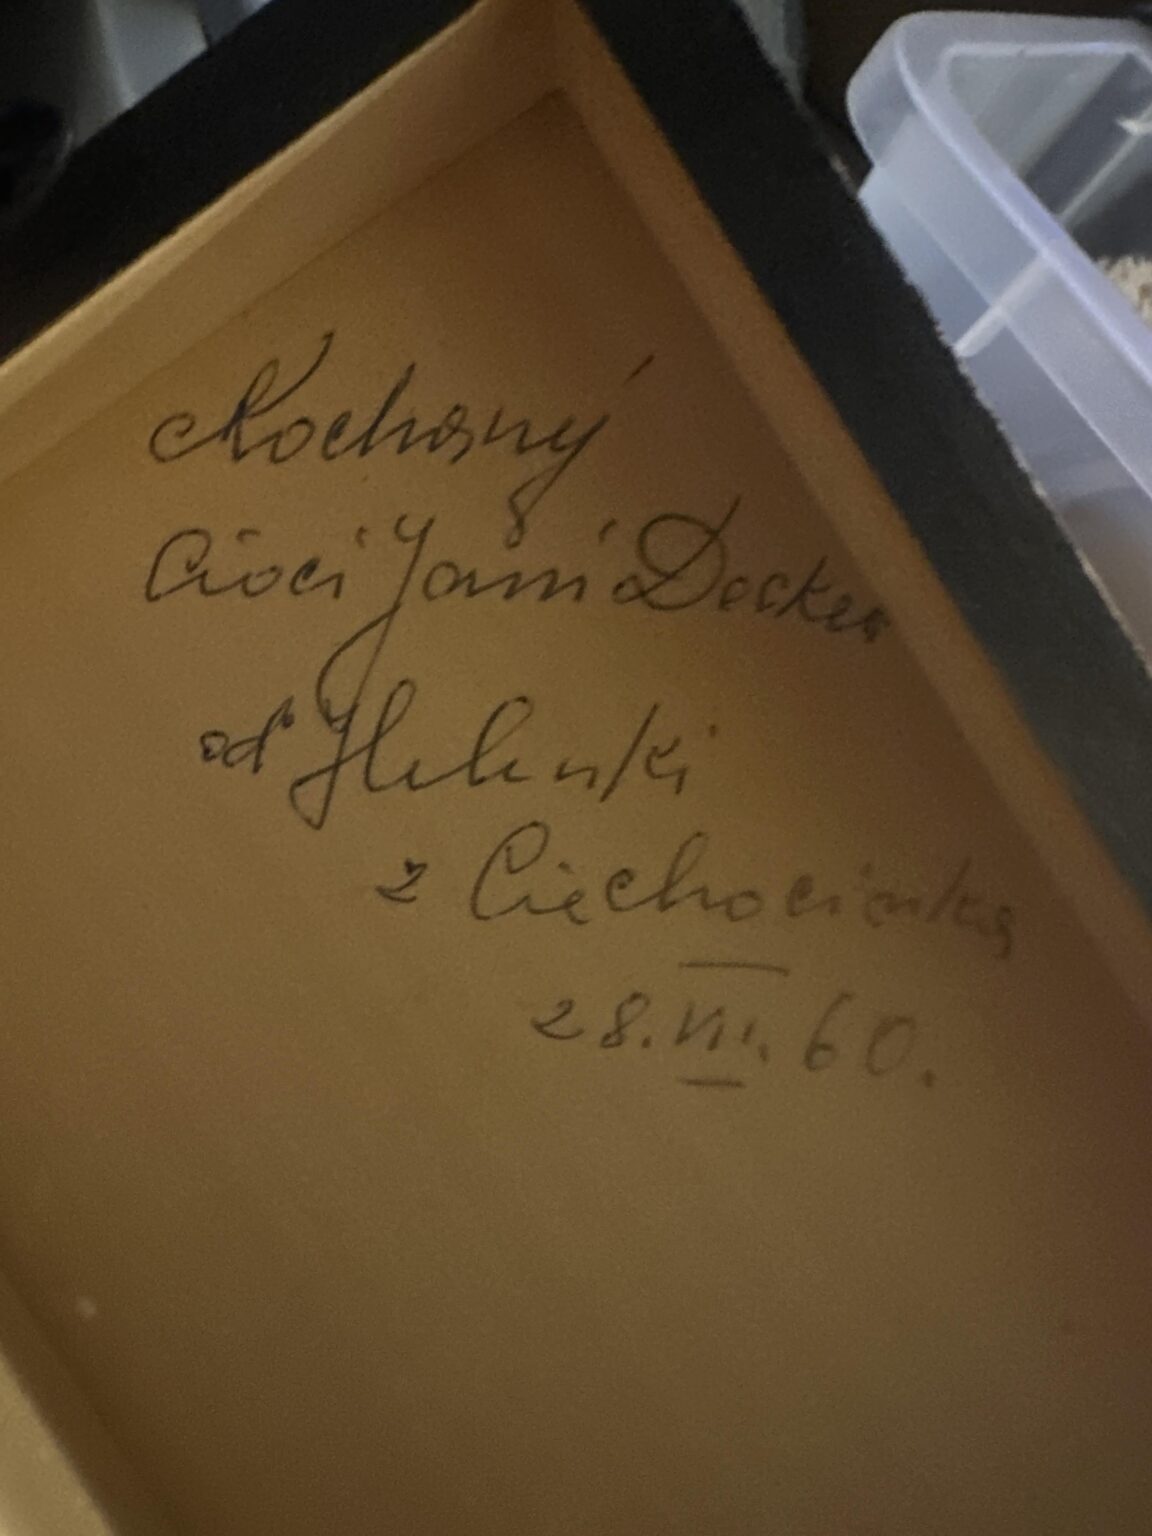 Kochanej
Cioci Jani Decker
od Helenki
z Ciechocinka
28.VII.60.